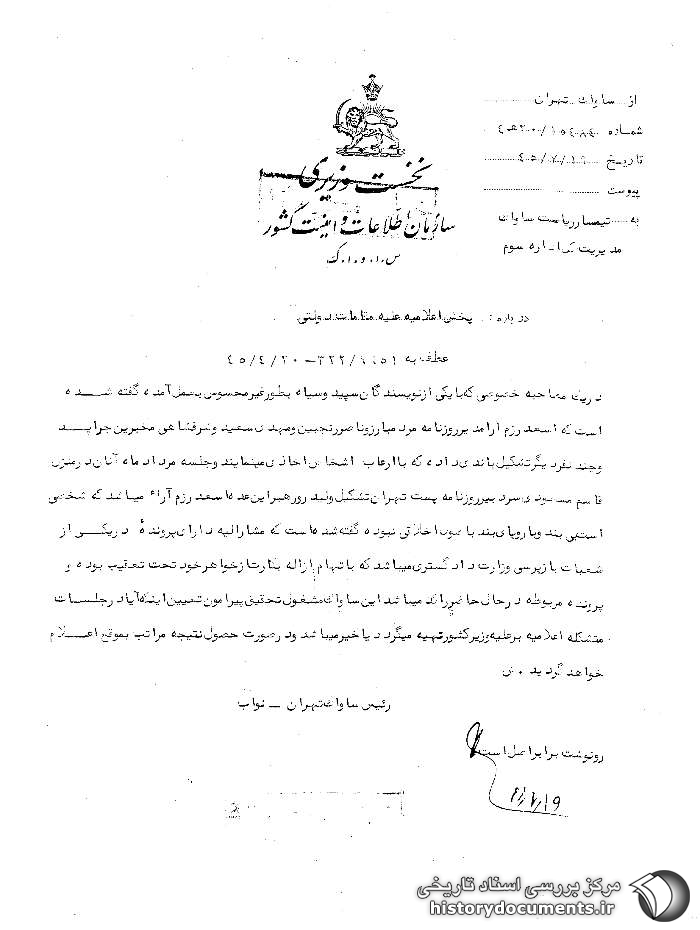 از ساواک تهران
شماره ۱۵۴۸۴/۲۰ه۴
تاریخ ۴۵/۷/۱۹
پیوست
به تیمسار ریاست ساواک
مدیریت کل اداره سوم
نخست وزیری
سازمان اطلاعات و امنیت کشور
س.ا.و.ا.ک
درباره : پخش اعلامیه علیه مقامات دولتی
عطف به ۳۲۲/ ۴۵/۴/۲۰
در یک مصاحبه خصوصی که با یکی از نویسندگان سپید و سیاه بطور غیر محسوس بعمل آمده گفته شده
است که اسعد رزم آرا مدیر روزنامه مرد مبارز و ناصر نجبین و مهدی سعید و شرفشاهی مخبرین جراید
و چند نفر دیگر تشکیل باندی داده که با ارعاب اشخاص اخاذی مینمایند و جلسه مرداد ماه آنان در منزل
قاسم مسعودی سردبیر روزنامه پست تهران تشکیل ولیدر و رهبر این عده اسعد رزم آراء میباشد که شخصی
است بی بند و بار و پای بند باصول اخلاقی نبوده گفته شده است که مشارالیه دارای پرونده ۀ در یکی از
شعبات بازپرسی وزارت دادگستری میباشد که باتهام ازاله بکارت از خواهر خود تحت تعقیب بوده و
پرونده مربوطه در حال حاضر راکد میباشد این ساواک مشغول تحقیق پیرامون تعیین اینکه آیا در جلسات
متشکله اعلامیه بر علیه وزیر کشور تهیه میگردد یا خیر میباشد و در صورت حصول نتیجه مراتب بموقع اعلام
خواهد گردید . ش
رئیس ساواک تهران – نواب
رونوشت برابر اصل است
۷/۱۹
مرکز بررسی اسناد تاریخی
historydocuments.ir